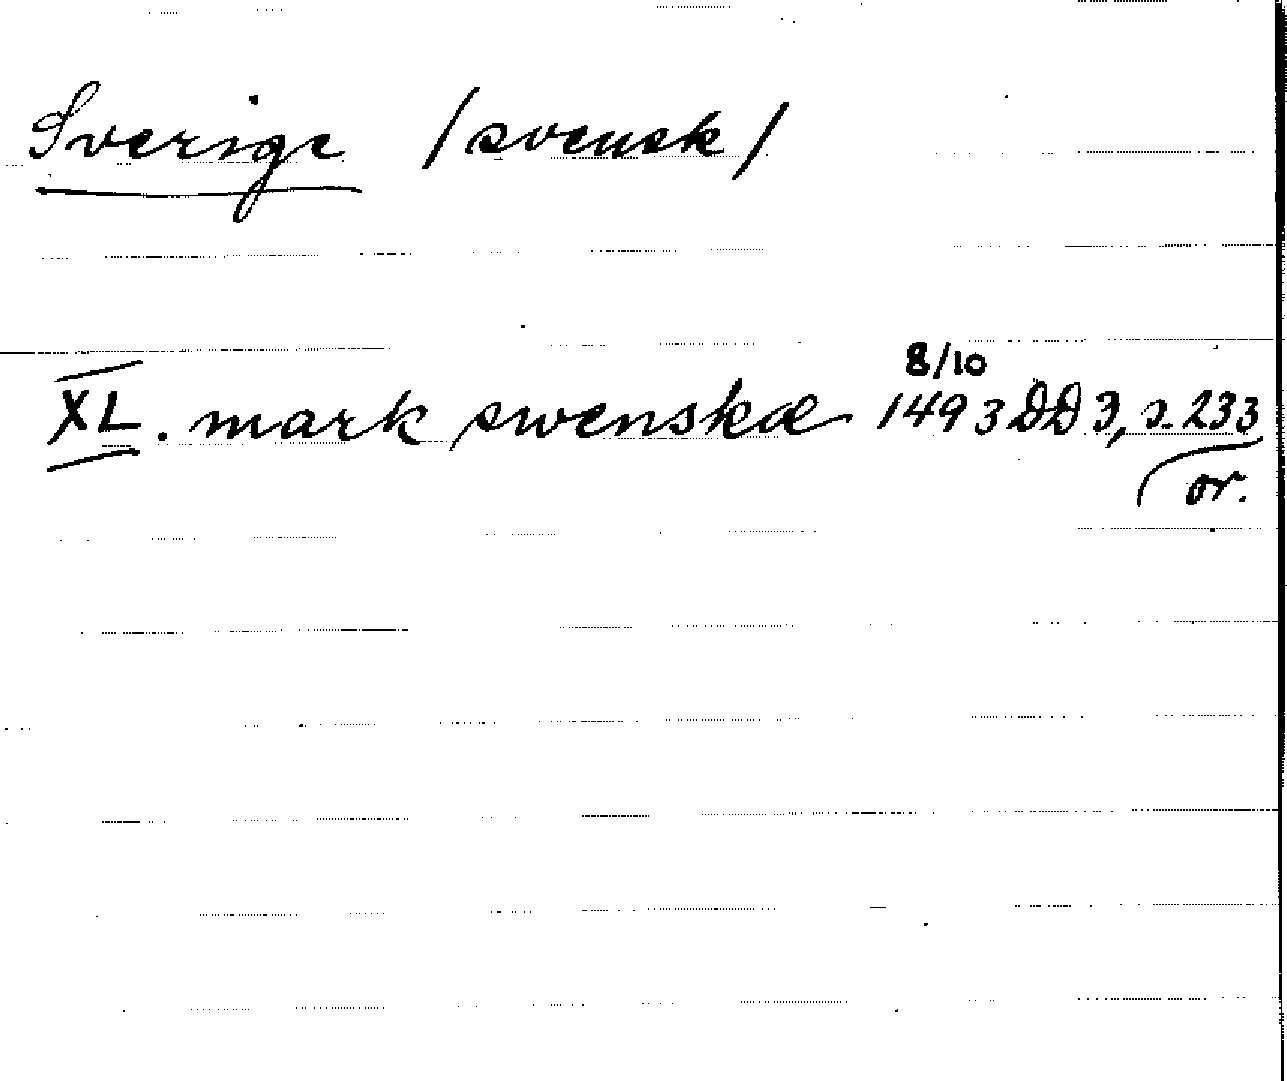 Sverige /svensk/
8/10
XL. mark swenskæ 1493 DD 3, s. 233
or.